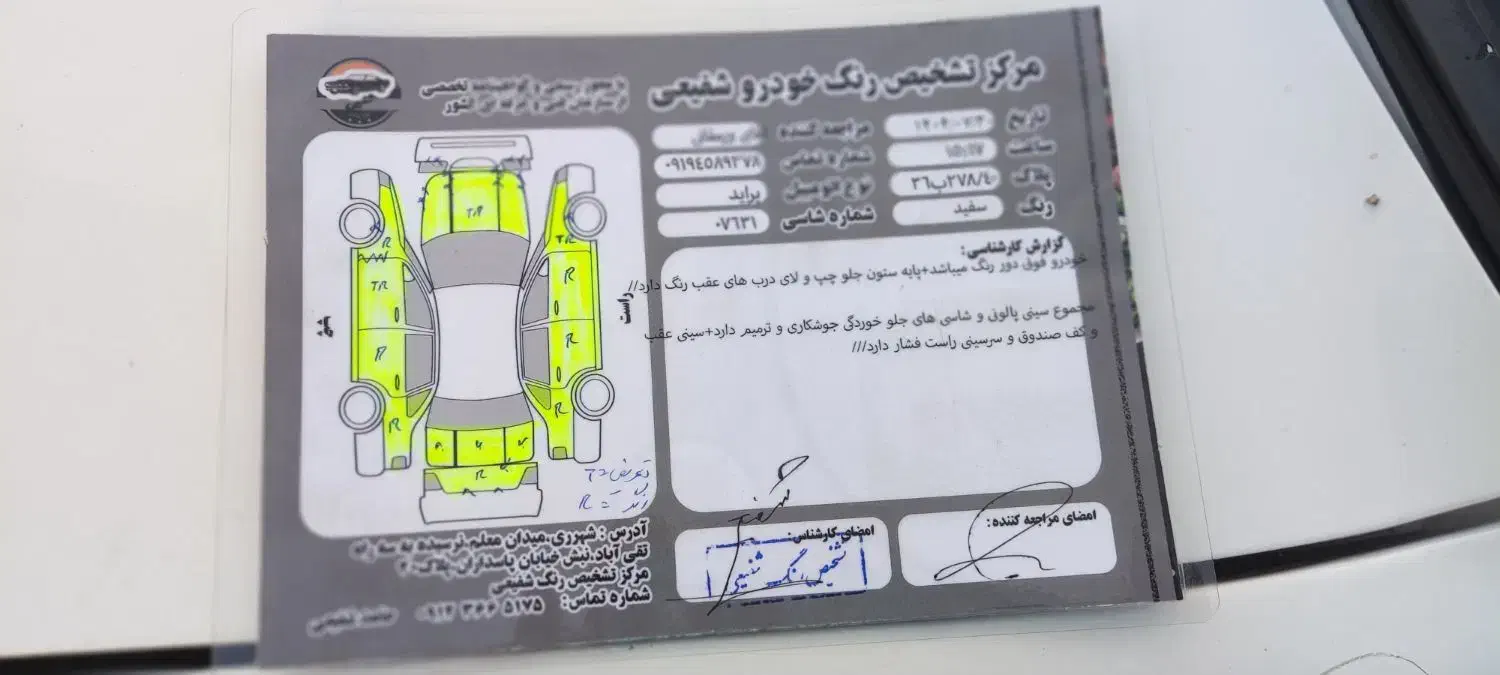 مرکز تشخیص رنگ خودرو شفیعی
تخصصی
کشور
تاریخ
مراجعه کننده
ساعت
۱۵:۱۷
شماره تماس
۰۹۱۹٤٥٨٩۲۷۸
پلاک
۳٦ب۲۷۸/٤۰
نوع اتومبیل
پراید
رنگ
سفید
شماره شاسی
۰۷٦۳۱
گزارش کارشناسی:
خودرو فوق دور رنگ میباشد+پایه ستون جلو چپ و لای درب های عقب رنگ دارد//
مجموع سینی پالونی و شاسی های جلو خوردگی جوشکاری و ترمیم دارد+سینی عقب
و کف صندوق و سرسینی راست فشار دارد///
راست
چپ
TR
R
TR
TR
R
R
R
R
R
R
T= تعویض
R =
امضای کارشناس:
تشخیص رنگ شفیعی
امضای مراجعه کننده:
آدرس : شهرری.میدان معلم.نرسیده به سه راه
تقی آباد.نبش خیابان پاسداران.پلاک۲
مرکز تشخیص رنگ شفیعی
شماره تماس: ۰۹۱۲ ۳۶۶ ۵۱۷۵